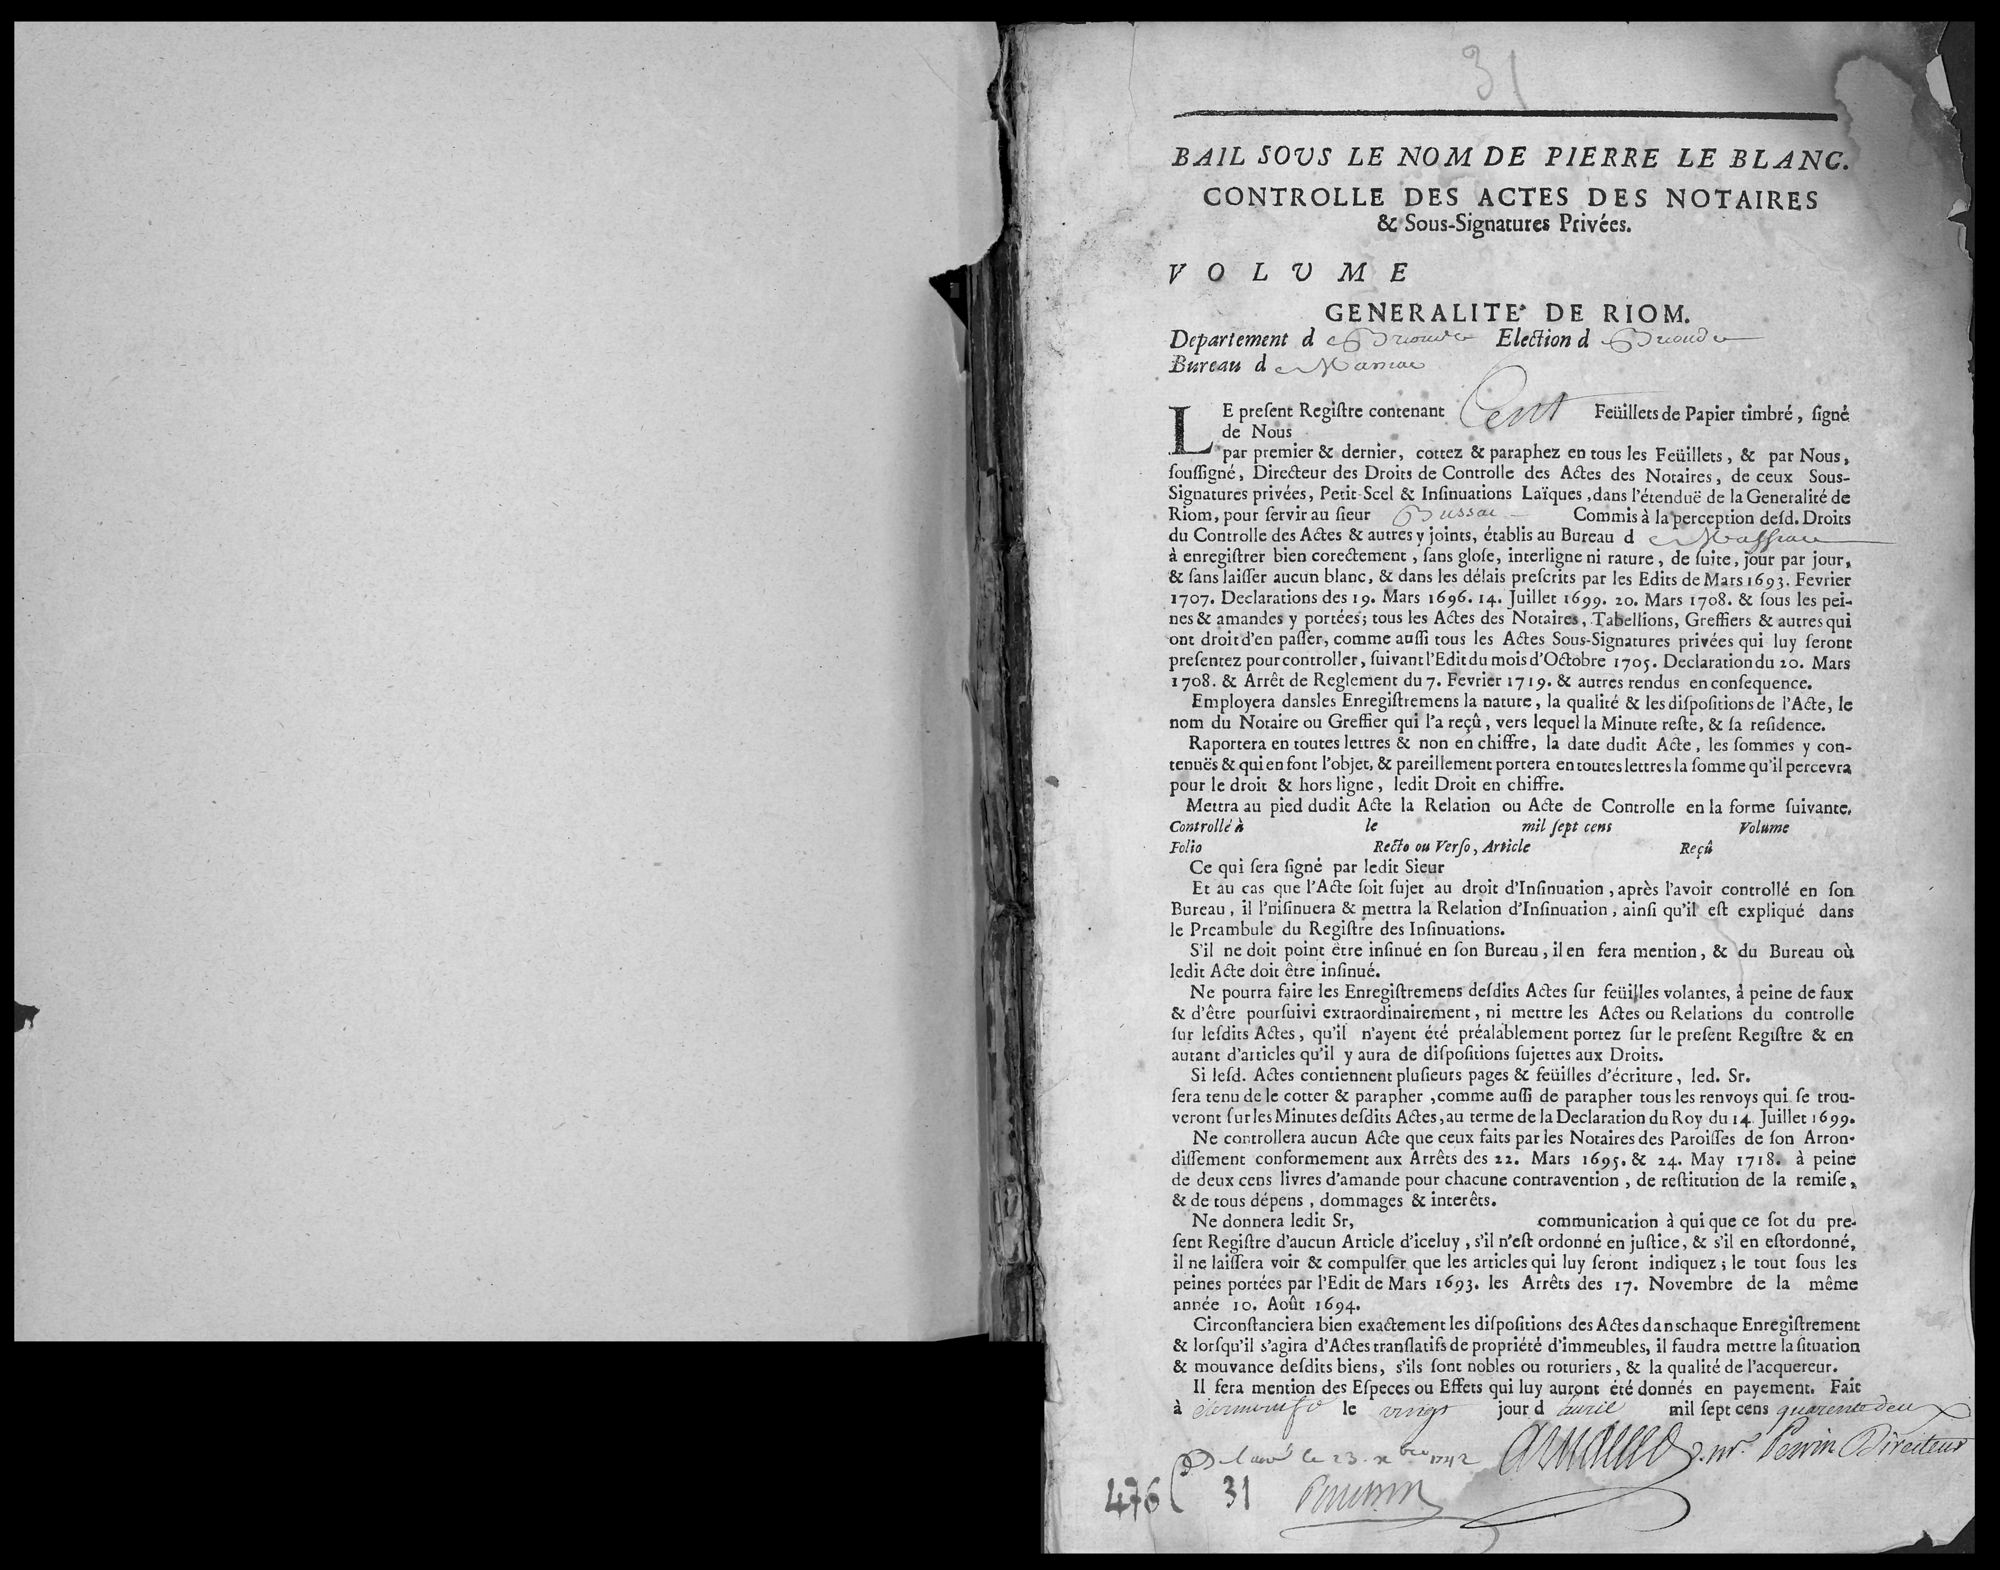 31
BAIL SOUS LE NOM DE PIERRE LE BLANC.
CONTROLLE DES ACTES DES NOTAIRES
& Sous-Signatures Privées.
VOLUME
GENERALITE' DE RIOM.
Departement d Brioude Election d Brioude
Bureau d Massiac
LE preſent Regiſtre contenant Cent Feüillets de Papier timbré, ſigné
de Nous
par premier & dernier, cottez & paraphez en tous les Feüillets, & par Nous,
ſouſſigné, Directeur des Droits de Controlle des Actes des Notaires, de ceux Sous-
Signatures privées, Petit-Scel & Inſinuations Laïques, dans l'étenduë de la Generalité de
Riom, pour ſervir au ſieur Bussac Commis à la perception deſd. Droits
du Controlle des Actes & autres y joints, établis au Bureau d Maſſiac
à enregiſtrer bien corectement, ſans gloſe, interligne ni rature, de ſuite, jour par jour,
& ſans laiſſer aucun blanc, & dans les délais preſcrits par les Edits de Mars 1693. Fevrier
1707. Declarations des 19. Mars 1696. 14. Juillet 1699. 20. Mars 1708. & ſous les pei-
nes & amandes y portées; tous les Actes des Notaires, Tabellions, Greffiers & autres qui
ont droit d'en paſſer, comme auſſi tous les Actes Sous-Signatures privées qui luy ſeront
preſentez pour controller, ſuivant l'Edit du mois d'Octobre 1705. Declaration du 20. Mars
1708. & Arrêt de Reglement du 7. Fevrier 1719. & autres rendus en conſequence.
Employera dans les Enregiſtremens la nature, la qualité & les diſpoſitions de l'Acte, le
nom du Notaire ou Greffier qui l'a reçû, vers lequel la Minute reſte, & ſa reſidence.
Raportera en toutes lettres & non en chiffre, la date dudit Acte, les ſommes y con-
tenuës & qui en font l'objet, & pareillement portera en toutes lettres la ſomme qu'il percevra
pour le droit & hors ligne, ledit Droit en chiffre.
Mettra au pied dudit Acte la Relation ou Acte de Controlle en la forme ſuivante.
Controllé à le mil ſept cens Volume
Folio Recto ou Verſo, Article Reçû
Ce qui ſera ſigné par ledit Sieur
Et au cas que l'Acte ſoit ſujet au droit d'Inſinuation, après l'avoir controllé en ſon
Bureau, il l'niſinuera & mettra la Relation d'Inſinuation, ainſi qu'il eſt expliqué dans
le Preambule du Regiſtre des Inſinuations.
S'il ne doit point être inſinué en ſon Bureau, il en fera mention, & du Bureau où
ledit Acte doit être inſinué.
Ne pourra faire les Enregiſtremens deſdits Actes ſur feüilles volantes, à peine de faux
& d'être pourſuivi extraordinairement, ni mettre les Actes ou Relations du controlle
ſur leſdits Actes, qu'il n'ayent été préalablement portez ſur le preſent Regiſtre & en
autant d'articles qu'il y aura de diſpoſitions ſujettes aux Droits.
Si leſd. Actes contiennent pluſieurs pages & feüilles d'écriture, led. Sr.
ſera tenu de le cotter & parapher, comme auſſi de parapher tous les renvoys qui ſe trou-
veront ſur les Minutes deſdits Actes, au terme de la Declaration du Roy du 14. Juillet 1699.
Ne controllera aucun Acte que ceux faits par les Notaires des Paroiſſes de ſon Arron-
diſſement conformement aux Arrêts des 22. Mars 1695. & 24. May 1718. à peine
de deux cens livres d'amande pour chacune contravention, de reſtitution de la remiſe,
& de tous dépens, dommages & interêts.
Ne donnera ledit Sr, communication à qui que ce ſot du pre-
ſent Regiſtre d'aucun Article d'iceluy, s'il n'eſt ordonné en juſtice, & s'il en eſtordonné,
il ne laiſſera voir & compulſer que les articles qui luy ſeront indiquez; le tout ſous les
peines portées par l'Edit de Mars 1693. les Arrêts des 17. Novembre de la même
année 10. Août 1694.
Circonſtanciera bien exactement les diſpoſitions des Actes danschaque Enregiſtrement
& lorſqu'il s'agira d'Actes tranſlatifs de propriété d'immeubles, il faudra mettre la ſituation
& mouvance deſdits biens, s'ils ſont nobles ou roturiers, & la qualité de l'acquereur.
Il fera mention des Eſpeces ou Effets qui luy auront été donnés en payement. Fait
à le vingt jour d avril mil ſept cens quarente deux
le 23. 1742 Perrin Directeur
476 31